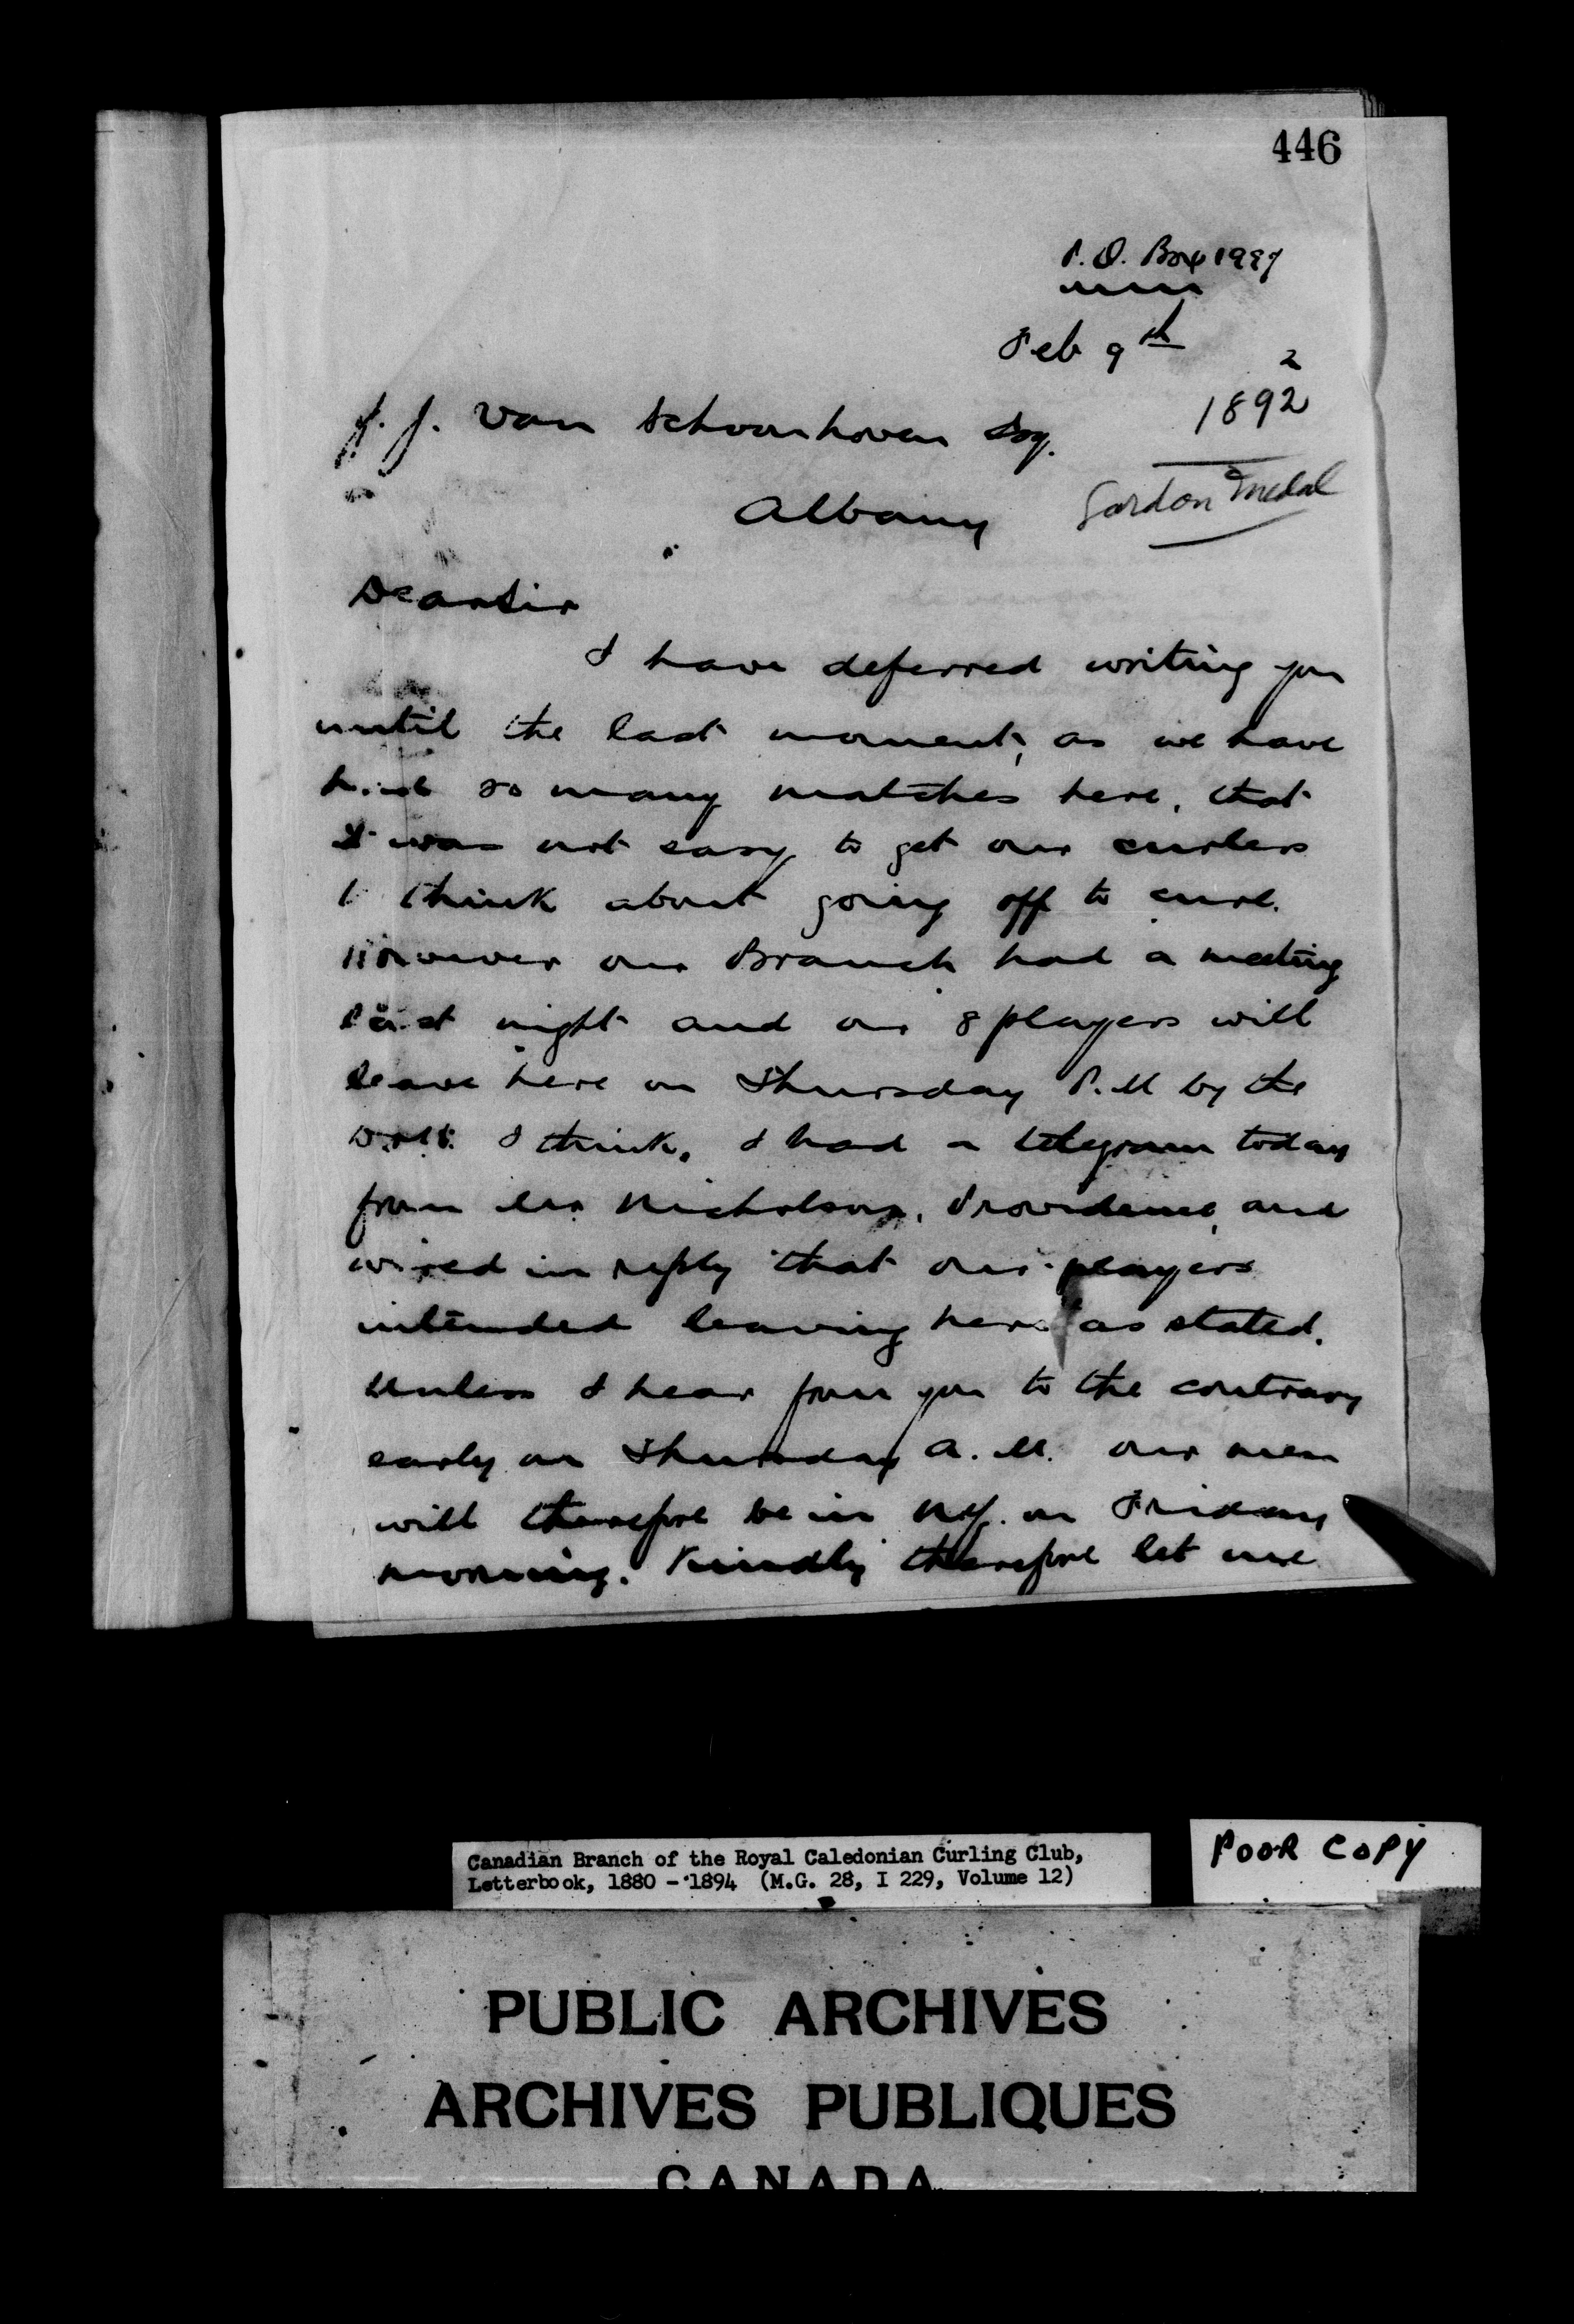 446
P.O. Box
Feb 9th
2
1892
J. J. Van Schoonhoven Esq.
Albany
Gordon Medal
Dear Sir
I have deferred writing you
until the last moment, as we have
had so many matches here, that
it was not easy to get our curlers
to think about going off to curl.
However our Branch had a meeting
last night and our 8 players will
leave here on Thursday P.M by the
I think. I had a telegram today
from Mr Nicholson, Providence, and
wired in reply that our players
intended leaving here as stated.
Unless I hear from you to the contrary
early on Thursday A.M. our men
will therefore be in N.Y. on Friday
morning. Kindly therefore let me
Canadian Branch of the Royal Caledonian Curling Club,
Letterbook, 1880 - 1894 (M.G. 28, I 229, Volume 12)
POOR COPY
PUBLIC ARCHIVES
ARCHIVES PUBLIQUES
CANADA